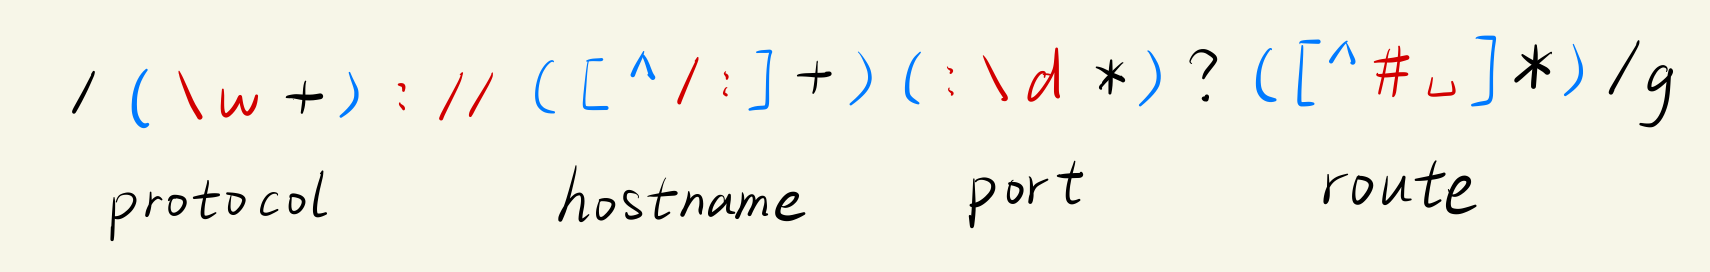 /(\w+)://([^/:]+)(:\d*)?([^#␣]*)/g
protocol hostname port route